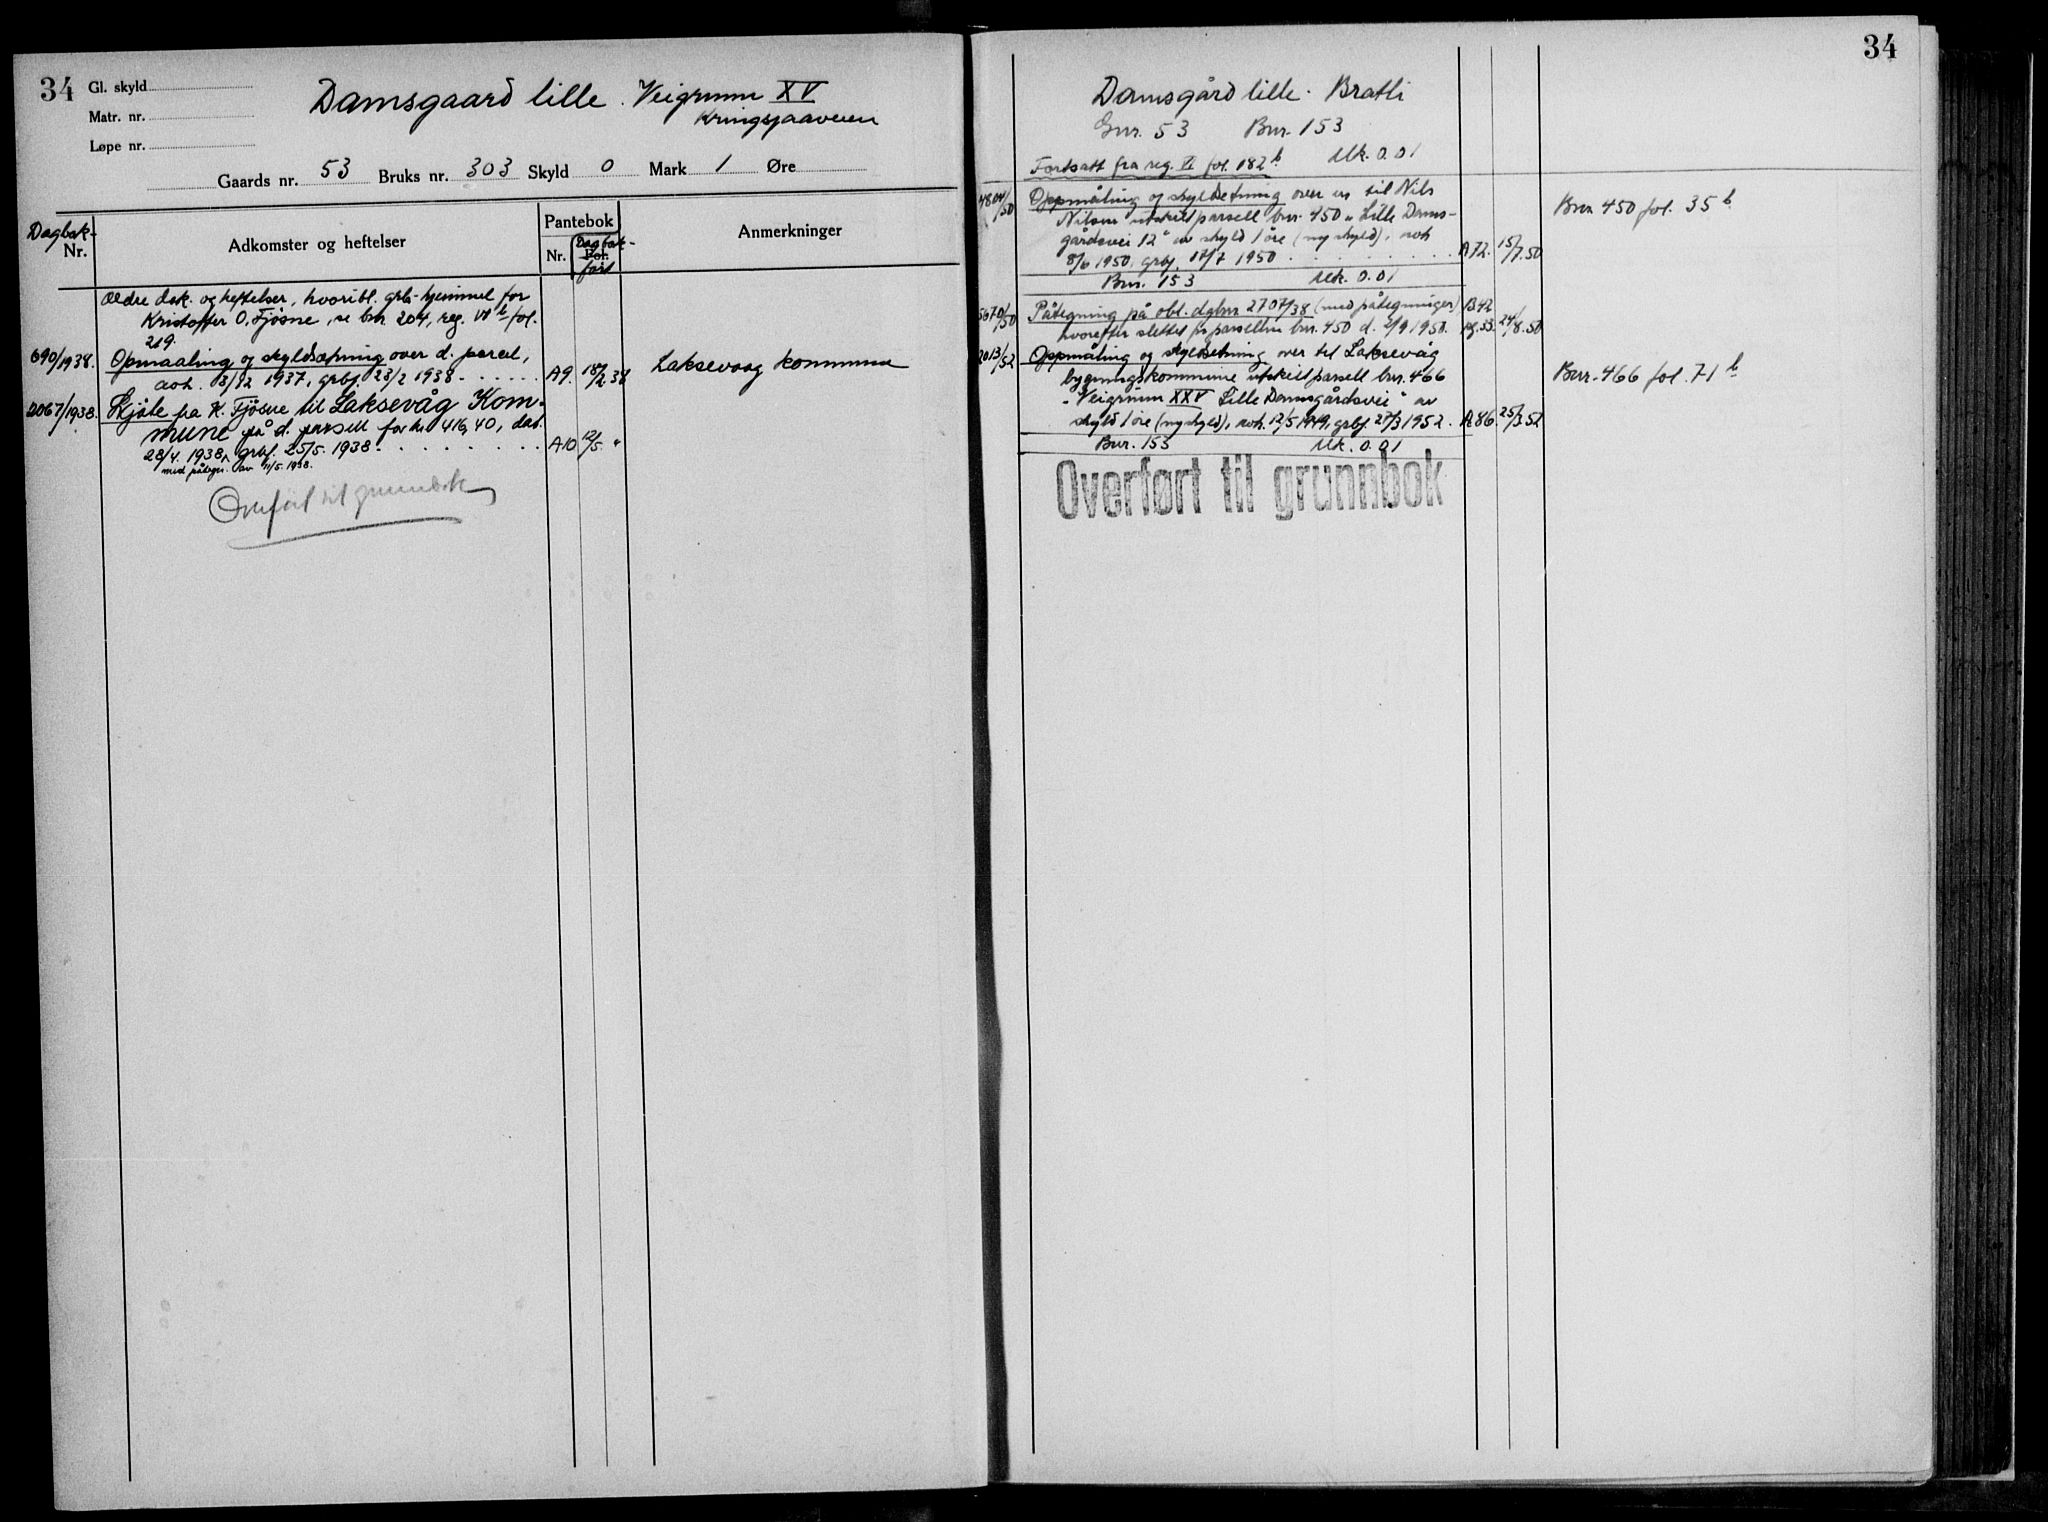 34
Gl. skyld
Matr. nr.
Løpe nr.
Damsgaard lille. Veigrunn XV
Kringsjaaveien
Gaards nr. 53 Bruks nr. 303 Skyld 0 Mark 1 Øre
Dagbok-
Nr.
Adkomster og heftelser
Pantebok
Nr.
Dagbok-
Fol.
ført
Anmerkninger
Ældre dok. og heftelser, hvoribl. grb-hjemmel for
Kristoffer O. Fjøsne, se bnr 204, reg. VI b fol.
219.
690/1938. Opmaaling og skyldsætning over d. parcel, Laksevaag kommune
avh. 3/12 1937, grbf. 23/2 1938 . . . . . . A9. 18/2 38
2067/1938. Skjöte fra K. Fjøsne til Laksevåg Kom-
mune på d. parsell for kr 416,40, dat.
28/4. 1938, grbf. 25/5. 1938 . . . . . . . . . A10 12/5. "
med påtegn. av 11/5. 1938.
Overført til grunnbok
34
Damsgård lille. Bratli
Gnr. 53 Bnr. 153
Fortsatt fra reg. VI fol. 182 b Mk. 0.01
4804/50 Oppmåling og skyldsetning over en til Nils Bnr 450 fol. 35 b
Nilsen utskilt parsell bnr. 450 „Lille Dams-
gårdsvei 12" av skyld 1 öre (ny skyld), avh
8/6 1950, grbf. 17/7 1950 . . . . . . . . . A72. 15/7.50
Bnr. 153 Mk. 0.01
5670/50 Påtegning på obl. dgbnr 2707/38 (med påtegninger) B42
hvorefter slettet for parsellen bnr. 450 d. 2/9 1950. pg.33. 24/8.50
2013/52 Oppmåling og skyldsetning over til Laksevåg
bygningskommune utskilt parsell bnr. 466 Bnr. 466 fol. 71 b
„Veigrunn XXV Lille Damsgårdsvei" av
skyld 1 öre (ny skyld), avh. 12/5 1949, grbf. 27/3 1952. A86. 25/3 52
Bnr. 153 Mk. 0.01
Overført til grunnbok